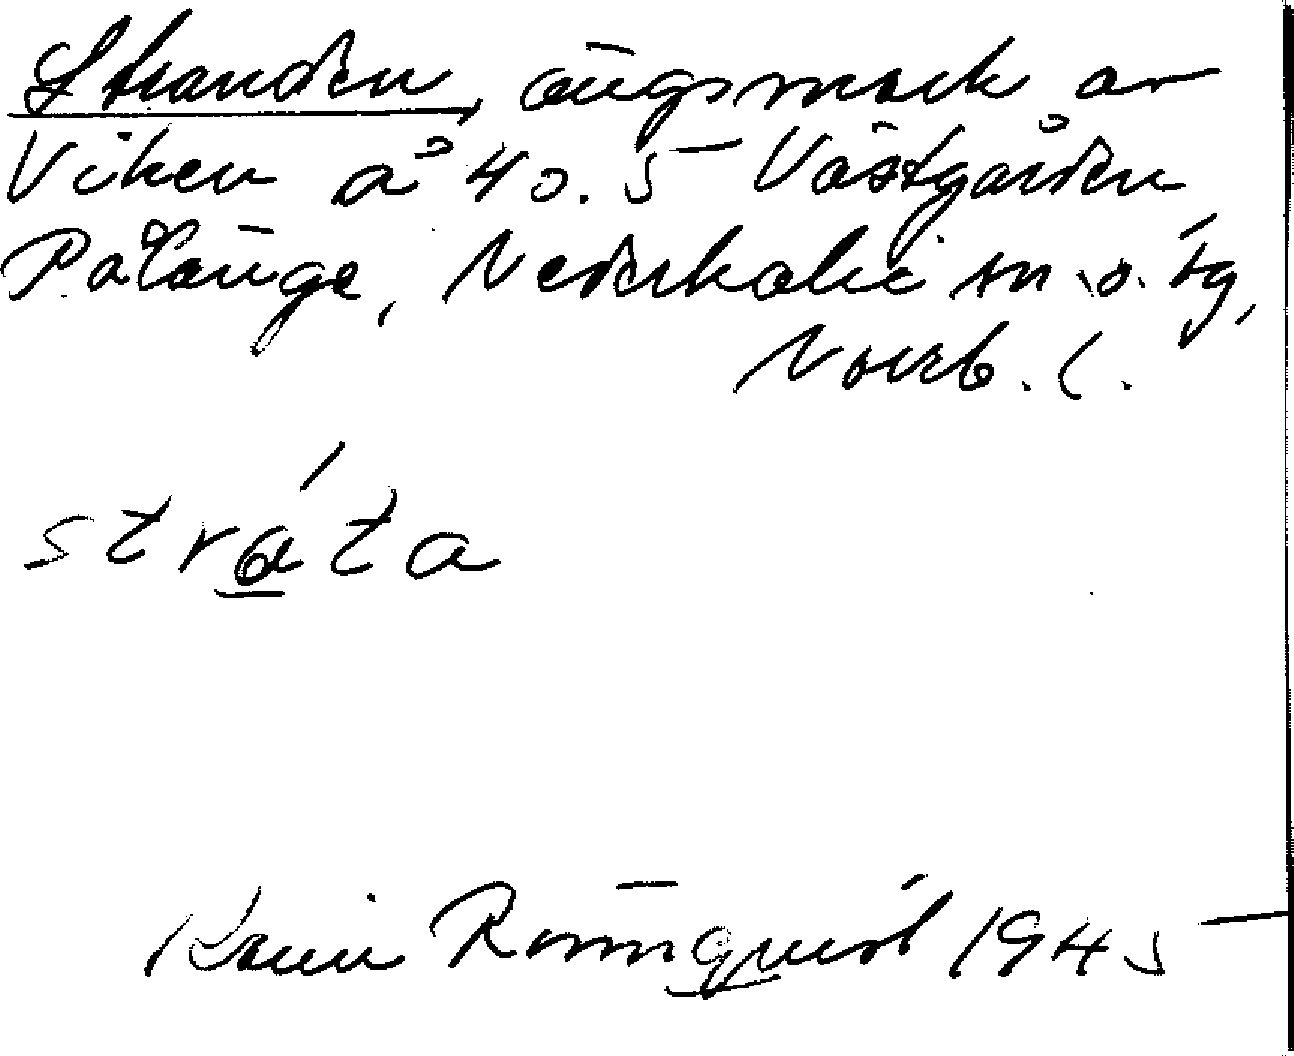 Stranden, ängsmark av
Viken å 40.5 Västgården
Pålänge, Nederkalix sn o. tg,
Norrb. l.
stráta
Karin Rönnquist 1945